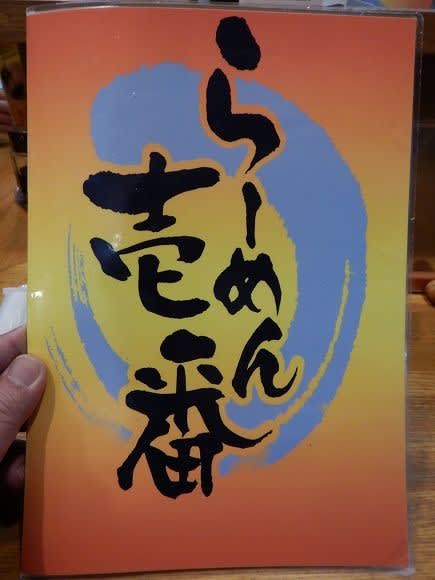 らーめん
壱番